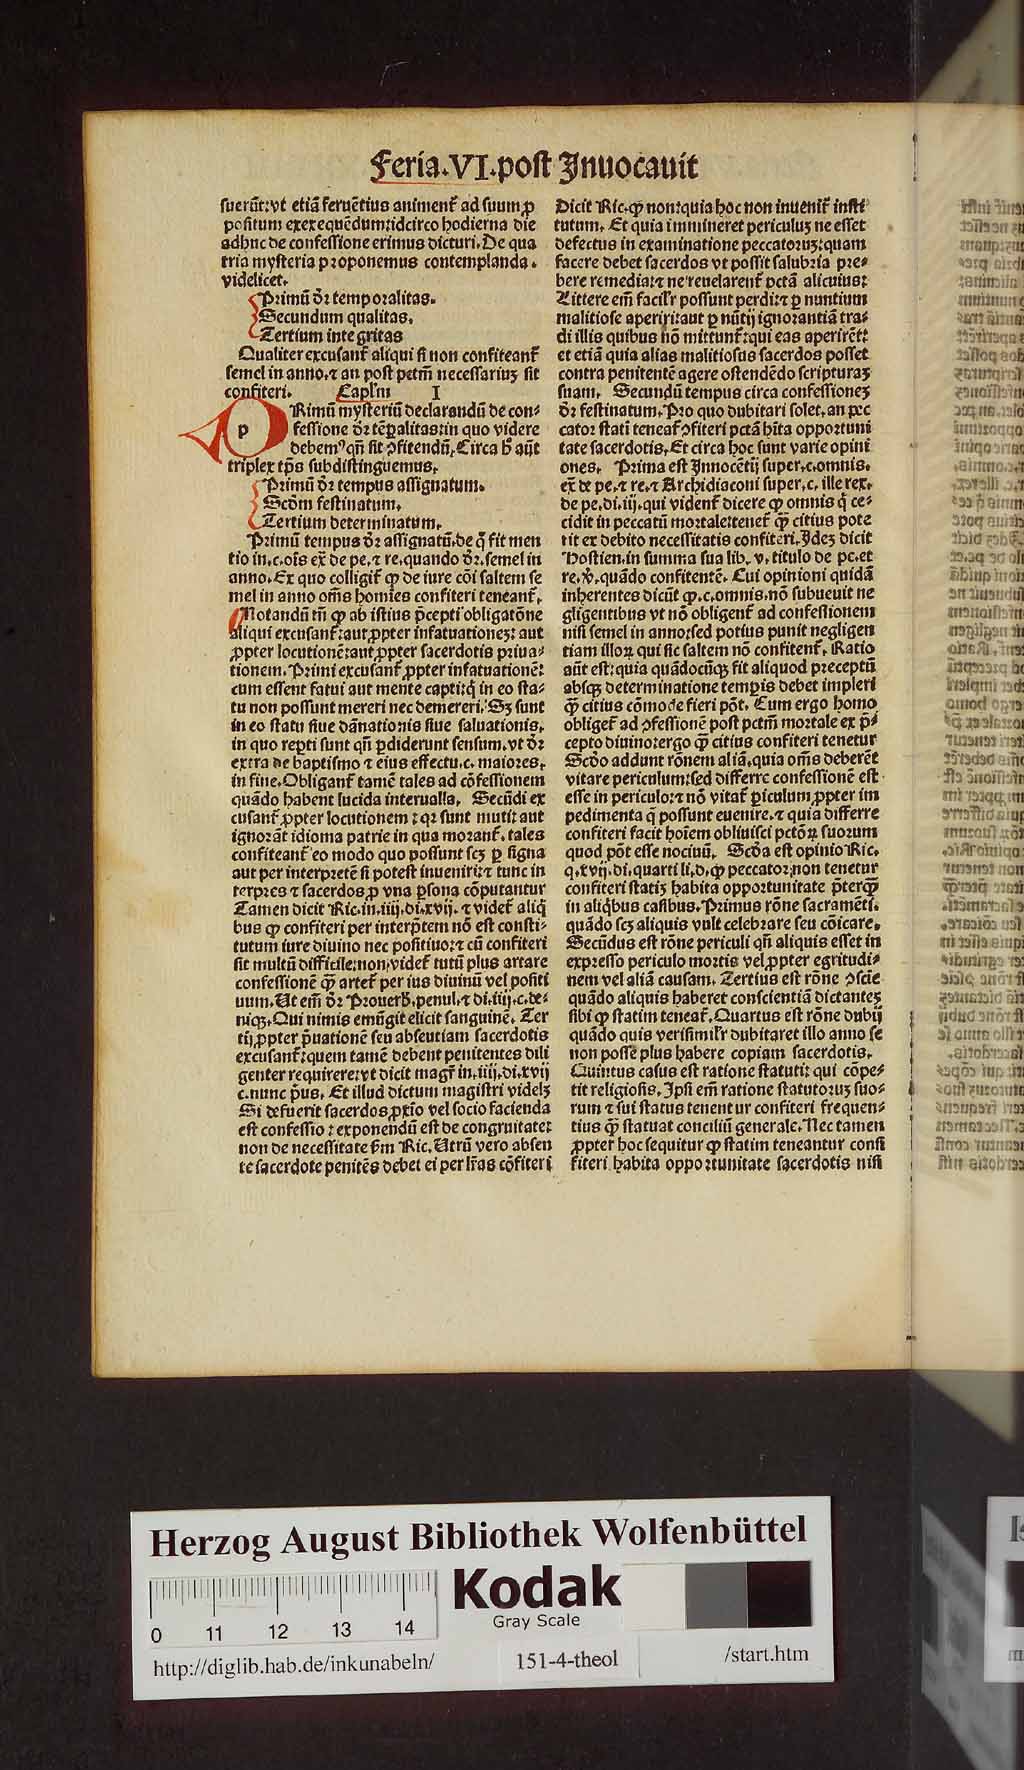 Feria.VI.post Inuocauit
fuerūt:vt etiā feruētius animent᷑ ad suum ꝓ
positum exexequēdum:idcirco hodierna die
adhuc de confessione erimus dicturi. De qua
tria mysteria proponemus contemplanda.
videlicet.
Primū dr̄ temporalitas.
Secundum qualitas.
Tertium integritas
Qualiter excusant᷑ aliqui si non confiteant᷑
semel in anno.⁊ an post petm̄ necessariuꝫ sit
confiteri. Capl'm I
pRimū mysteriū declarandū de con-
fessione dr̄ tēꝑalitas:in quo videre
debemꝰ qn̄ sit ꝯfitendū. Circa h̄ aūt
triplex tp̄s subdistinguemus.
Primū dr̄ tempus assignatum.
Scdm̄ festinatum.
Tertium determinatum.
Primū tempus dr̄ assignatū.de q̄ fit men
tio in.c.oīs ex̄ de pe.⁊ re.quando dr̄.semel in
anno. Ex quo colligit᷑ ꝙ de iure cōi saltem se
mel in anno om̄s homīes confiteri teneant᷑.
Notandū tn̄ ꝙ ab istius p̄cepti obligatōne
aliqui excusant᷑:aut ꝓpter infatuationeꝫ: aut
ꝓpter locutionē:aut ꝓpter sacerdotis priua-
tionem. Primi excusant᷑ ꝓpter infatuationē:
cum essent fatui aut mente capti:q̇ in eo sta-
tu non possunt mereri nec demereri. Sꝫ sunt
in eo statu siue dānationis siue saluationis.
in quo reꝑti sunt qn̄ ꝑdiderunt sensum.vt dr̄
extra de baptismo ⁊ eius effectu.c. maiores.
in fine. Obligant᷑ tamē tales ad cōfessionem
quādo habent lucida interualla. Secūdi ex
cusant᷑ ꝓpter locutionem : qꝛ sunt muti:t aut
ignorāt idioma patrie in qua morant᷑. tales
confiteant᷑ eo modo quo possunt scꝫ ꝑ signa
aut per interpretē si potest inueniri:⁊ tunc in
terpres ⁊ sacerdos ꝓ vna ꝑsona cōputantur
Tamen dicit Ric.in.iiij.di.xvij. ⁊ videt᷑ aliq̇
bus ꝙ confiteri per interp̄tem nō est consti-
tutum iure diuino nec positiuo:⁊ cū confiteri
sit multū difficile:non videt᷑ tutū plus artare
confessionē qꝫ artet᷑ per ius diuinū vel positi
uum. Ut em̄ dr̄ Prouerb̄.penul.⁊ di.iiij.c.de-
niqꝫ. Qui nimis emūgit elicit sanguinē. Ter
tij ꝓpter p̄uationē seu absentiam sacerdotis
excusant᷑:quem tamē debent penitentes dili
genter requirere:vt dicit magr̄ in.iiij.di.xvij
c.nunc p̄us. Et illud dictum magistri videlꝫ
Si defuerit sacerdos ꝓxīo vel socio facienda
est confessio: exponendū est de congruitate:
non de necessitate ẜm Ric. Utrū vero absen
te sacerdote penitēs debet ei per lr̄as cōfiteri
Dicit Ric.ꝙ non:quia hoc non inuenit᷑ insti
tutum. Et quia immineret periculuꝫ ne esset
defectus in examinatione peccatoruꝫ:quam
facere debet sacerdos vt possit salubria pre-
bere remedia:⁊ ne reuelarent᷑ pctā alicuius:
Littere em̄ facilr̄ possunt perdi:⁊ ꝑ nuntium
malitiose aperiri:aut ꝑ nūtij ignorantiā tra-
di illis quibus nō mittunt᷑:qui eas aperirēt:
et etiā quia alias malitiosus sacerdos posset
contra penitentē agere ostendēdo scripturaꝫ
suam. Secundū tempus circa confessioneꝫ
dr̄ festinatum. Pro quo dubitari solet.an pec
cator statī teneat᷑ ꝯfiteri pctā hīta opportuni
tate sacerdotis. Et circa hoc sunt varie opini
ones. Prima est Innocētij super.c.omnis.
ex̄ de pe.⁊ re.⁊ Archidiaconi super.c. ille rex.
de pe.di.iij.qui vident᷑ dicere ꝙ omnis q̇ ce-
cidit in peccatū mortale:tenet᷑ qꝫ citius pote
rit ex debito necessitatis confiteri. Ideꝫ dicit
Hostien.in summa sua lib. v. titulo de pe.et
re.v̄.quādo confitentē. Cui opinioni quidā
inherentes dicūt ꝙ.c.omnis.nō subueuit ne
gligentibus vt nō obligent᷑ ad confessionem
nisi semel in anno:sed potius punit negligen
tiam illoꝝ qui sic saltem nō confitent᷑. Ratio
aūt est:quia quādocūqꝫ fit aliquod preceptū
absqꝫ determinatione temꝑis debet impleri
qꝫ citius cōmode fieri pōt. Cum ergo homo
obliget᷑ ad ꝯfessionē post pctm̄ mortale ex p̄-
cepto diuino:ergo qꝫ citius confiteri tenetur
Scd̄o addunt rōnem aliā.quia om̄s deberēt
vitare periculum:sed differre confessionē est
esse in periculo:⁊ nō vitat᷑ ꝑiculum ꝓpter im
pedimenta q̄ possunt euenire.⁊ quia differre
confiteri facit hoīem obliuisci pctōꝝ suorum
quod pōt esse nociuū. Scd̄a est opinio Ric.
q.xvij.di.quarti li.d.ꝙ peccator:non tenetur
confiteri statiꝫ habita opportunitate p̄terqꝫ
in aliq̇bus casibus. Primus rōne sacramēti.
quādo scꝫ aliquis vult celebrare seu cōicare.
Secūdus est rōne periculi qn̄ aliquis esset in
expresso periculo mortis vel ꝓpter egritudi-
nem vel aliā causam. Tertius est rōne ꝯsciē
quādo aliquis haberet conscientiā dictanteꝫ
sibi ꝙ statim teneat᷑. Quartus est rōne dubij
quādo quis verisimilr̄ dubitaret illo anno se
non posse plus habere copiam sacerdotis.
Quintus casus est ratione statuti: qui cōpe-
tit religiosis. Ipsi em̄ ratione statutoruꝫ suo-
rum ⁊ sui status tenentur confiteri frequen-
tius qꝫ statuat conciliū generale. Nec tamen
ꝓpter hoc sequitur ꝙ statim teneantur consi
fiteri habita opportunitate sacerdotis nisi
Herzog August Bibliothek Wolfenbüttel
Kodak
Gray Scale
0 11 12 13 14
http://diglib.hab.de/inkunabeln/ 151-4-theol /start.htm